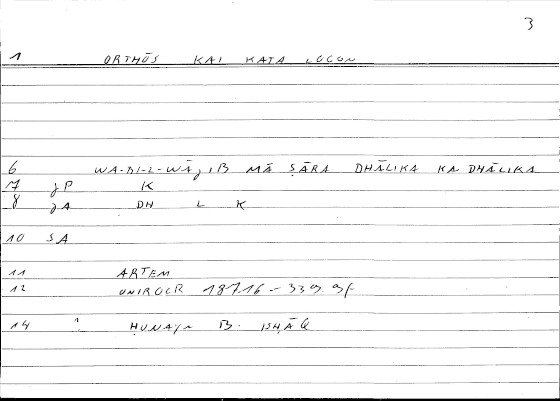 3
1 ORTHŌS KAI KATA LOGON
6 WA-BI-L-WĀǧIB MĀ ṢĀRA DHĀLIKA KA-DHĀLIKA
7 jP K
8 jA DH L K
10 SA
11 ARTEM
12 18.716 - 339. 9f.
14 1 ḤUNAYN B. ISḤĀQ